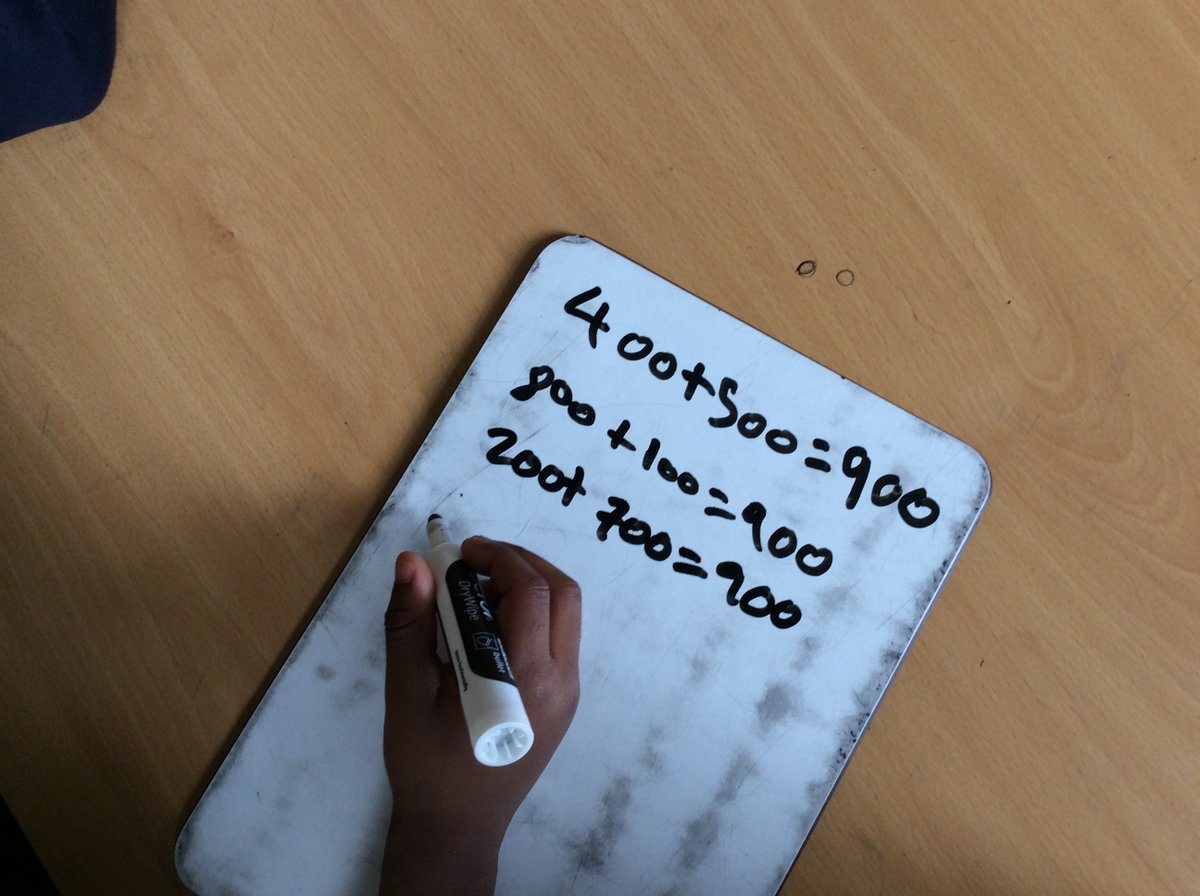 400+500=900
800+100=900
200+700=900
DryWipe
Bullet